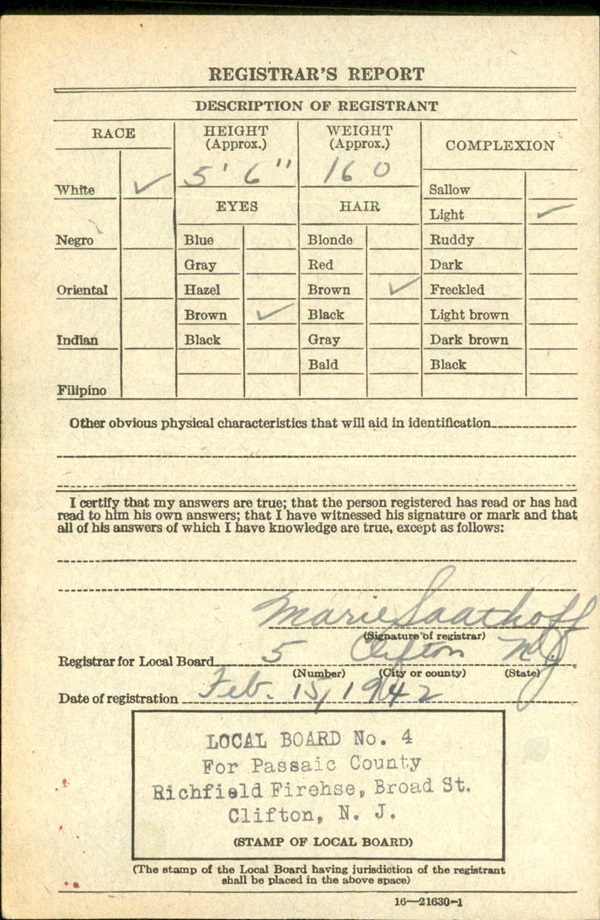 REGISTRAR'S REPORT
DESCRIPTION OF REGISTRANT
RACE
HEIGHT (Approx.)
WEIGHT (Approx.)
COMPLEXION
5' 6"
160
White ✓
EYES
HAIR
Sallow
Light ✓
Negro
Blue
Blonde
Ruddy
Gray
Red
Dark
Oriental
Hazel
Brown ✓
Freckled
Brown ✓
Black
Light brown
Indian
Black
Gray
Dark brown
Bald
Black
Filipino
Other obvious physical characteristics that will aid in identification
I certify that my answers are true; that the person registered has read or has had
read to him his own answers; that I have witnessed his signature or mark and that
all of his answers of which I have knowledge are true, except as follows:
Marie Saathoff
(Signature of registrar)
Registrar for Local Board 5 Clifton N.J.
(Number) (City or county) (State)
Date of registration Feb. 15, 1942
LOCAL BOARD No. 4
For Passaic County
Richfield Firehse, Broad St.
Clifton, N. J.
(STAMP OF LOCAL BOARD)
(The stamp of the Local Board having jurisdiction of the registrant
shall be placed in the above space)
16—21630-1